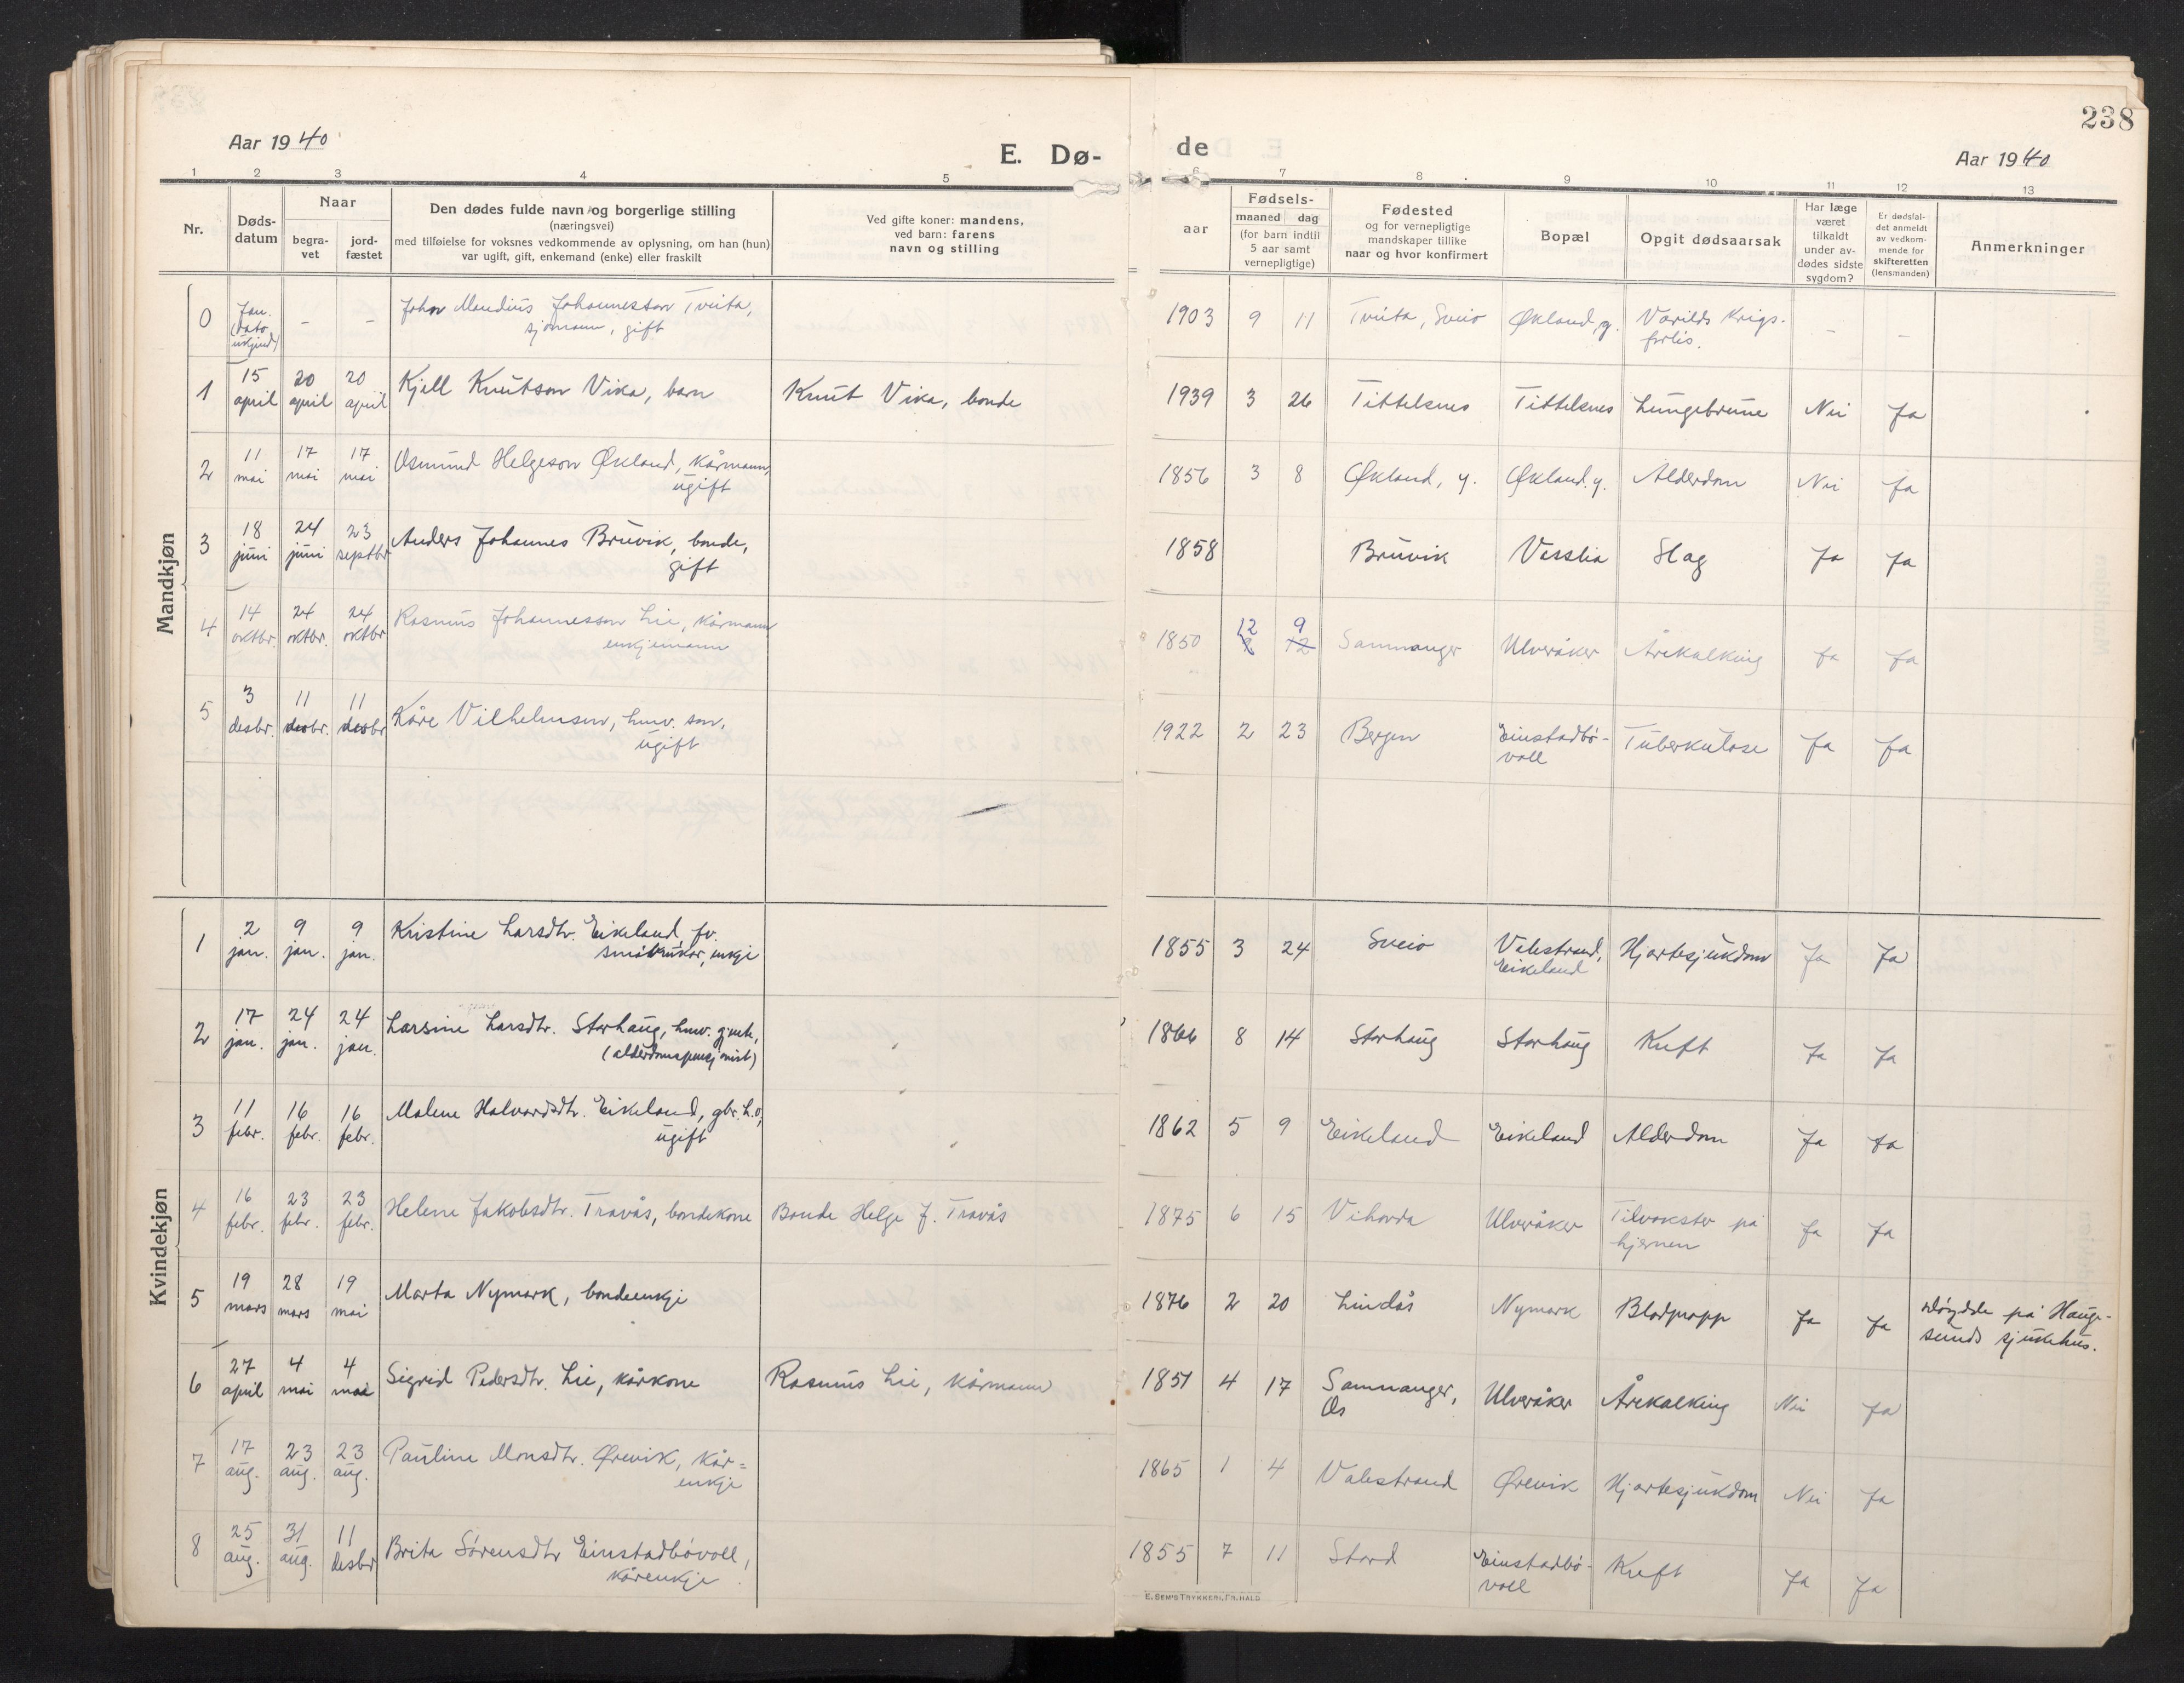 238
Aar 1940
E. Dø-
de
Aar 1940
1 2 3 4 5 6 7 8 9 10 11 12 13
Nr.
Døds-
datum
Naar
begra-
vet
jord-
fæstet
Den dødes fulde navn og borgerlige stilling
(næringsvei)
med tilføielse for voksnes vedkommende av oplysning, om han (hun)
var ugift, gift, enkemand (enke) eller fraskilt
Ved gifte koner: mandens,
ved barn: farens
navn og stilling
aar
Fødsels-
maaned dag
(for barn indtil
5 aar samt
vernepligtige)
Fødested
og for vernepligtige
mandskaper tillike
naar og hvor konfirmert
Bopæl
Opgit dødsaarsak
Har læge
været
tilkaldt
under av-
dødes sidste
sygdom?
Er dødsfal-
det anmeldt
av vedkom-
mende for
skifteretten
(lensmanden)
Anmerkninger
Mandkjøn
0
Jan.
(dato
ukjend)
– –
John Mandius Johannesson Tveita,
sjømann, gift
1903 9 11 Tveita, Sveio Økland, y. Varilds Krigs-
forlis.
– –
1
15
april
20
april
20
april
Kjell Knutson Vika, barn
Knut Vika, bonde
1939 3 26 Tittelsnes Tittelsnes Lungebrune Nei Ja
2
11
mai
17
mai
17
mai
Osmund Helgeson Økland, kårmann,
ugift
1856 3 8 Økland, y. Økland. y. Alderdom Nei Ja
3
18
juni
24
juni
23
septbr
Anders Johannes Bruvik, bonde,
gift
1858 Bruvik Vesslia Slag Ja Ja
4
14
oktbr.
24
oktbr.
24
oktbr
Rasmus Johannesson Lie, kårmann
enkjemann
1850 12 9 Samnanger Ulveråker Årekalking Ja Ja
5
3
desbr.
11
desbr.
11
desbr
Kåre Vilhelmsen, hmv. son,
ugift
1922 2 23 Bergen Einstadbø-
voll
Tuberkulose Ja Ja
Kvindekjøn
1
2
jan.
9
jan.
9
jan.
Kristine Larsdtr. Eikeland, fv.
småbrukar, enkje
1855 3 24 Sveio Valestrand,
Eikeland
Hjartesjukdom Ja Ja
2
17
jan.
24
jan.
24
jan.
Larsine Larsdtr. Storhaug, hmv. gjente,
(alderdomspensjonist)
1866 8 14 Storhaug Storhaug Kreft Ja Ja
3
11
febr.
16
febr.
16
febr.
Malene Halvardsdtr. Eikeland, gbr. h.o,
ugift
1862 5 9 Eikeland Eikeland Alderdom Ja Ja
4
16
febr.
23
febr.
23
febr.
Helene Jakobsdtr. Travås, bondekone
Bonde Helge J. Travås
1875 6 15 Vihovda Ulveråker Tilvokster på
hjernen
Ja Ja
5
19
mars
28
mars
19
mai
Marta Nymark, bondeenkje
1876 2 20 Lindås Nymark Blodpropp Ja Ja døydde på Hauge-
sunds sjukehus.
6
27
april
4
mai
4
mai
Sigrid Pedersdtr. Lie, kårkone
Rasmus Lie, kårmann
1851 4 17 Samnanger,
Os
Ulveråker Årekalking Nei Ja
7
17
aug.
23
aug.
23
aug.
Pauline Monsdtr. Ørevik, kår=
enkje
1865 1 4 Valestrand Ørevik Hjartesjukdom Nei Ja
8
25
aug.
31
aug.
11
desbr
Brita Sørensdtr Einstadbøvoll,
kårenkje
1855 7 11 Stord Einstadbø-
voll
Kreft Ja Ja
E. SEM'S TRYKKERI, FR.HALD